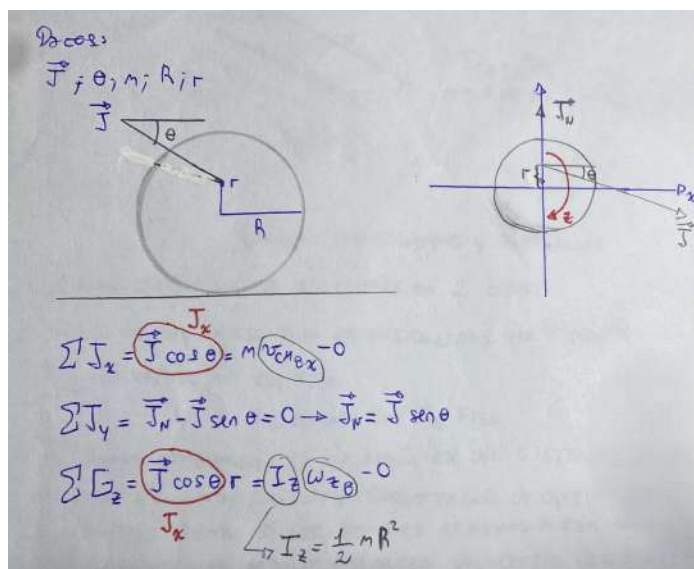 Dacos:
J⃗ ; θ; m; R; r
J⃗
θ
r
R
J⃗_N
r
θ
x
z
J⃗
J_x
∑ J_x = J⃗ cos θ = m v_{CMθx} - 0
∑ J_y = J⃗_N - J⃗ sen θ = 0 → J⃗_N = J⃗ sen θ
∑ G_z = J⃗ cos θ r = I_z ω_{zθ} - 0
J_x
I_z = 1/2 m R²